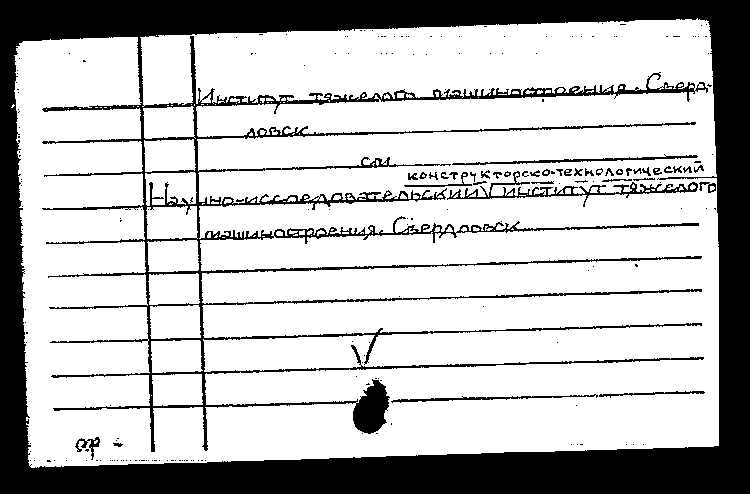 Институт тяжелого машиностроения. Сверд-
ловск.
см.
конструкторско-технологический
Научно-исследовательский √ институт тяжелого
машиностроения. Свердловск
√